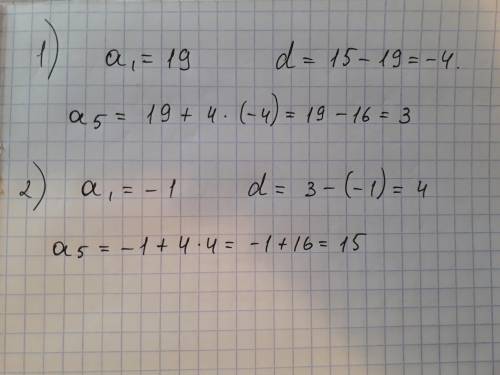 1) a₁ = 19 d = 15 - 19 = -4.
a₅ = 19 + 4 · (-4) = 19 - 16 = 3
2) a₁ = - 1 d = 3 - (-1) = 4
a₅ = -1 + 4 · 4 = -1 + 16 = 15